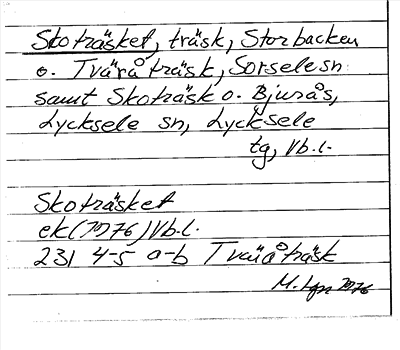 Skoträsket, träsk, Storbacken
o. Tvärå träsk, Sorsele sn
samt Skoträsk o. Bjurås,
Lycksele sn, Lycksele
tg, Vb.l.
Skoträsket
ek (1976) Vb.l.
231 4-5 a-b Tväråträsk
M. 1976